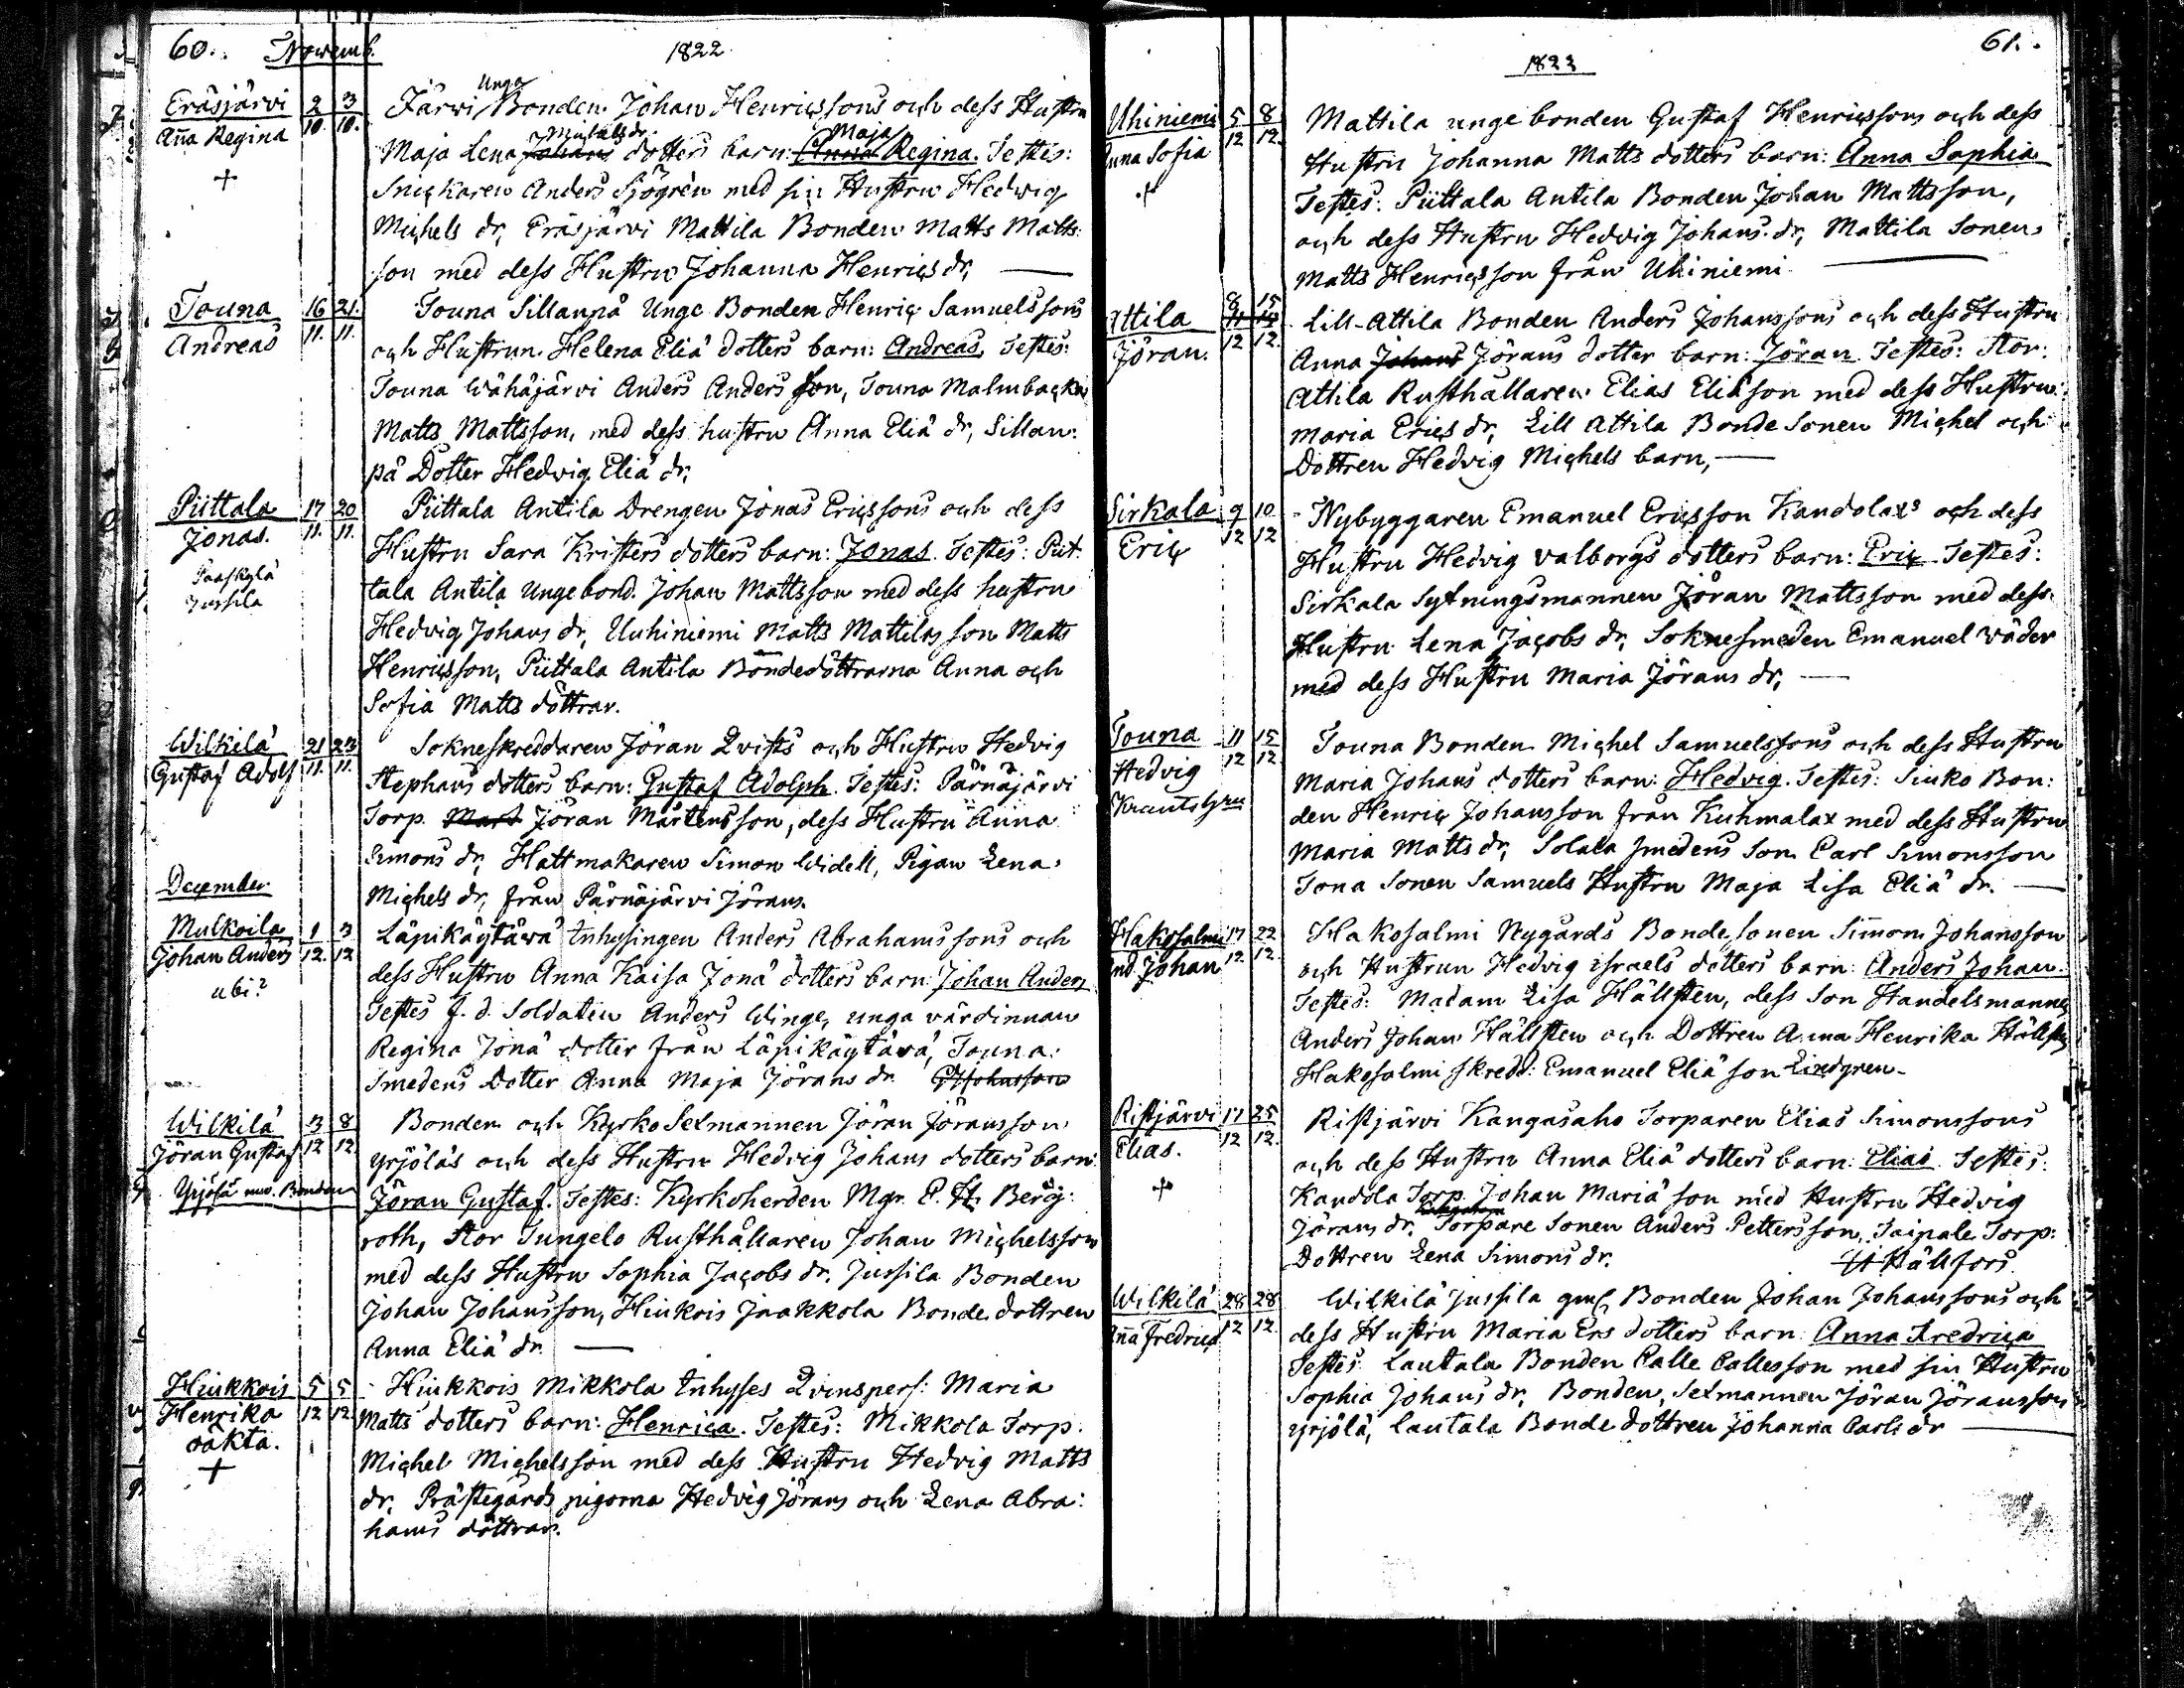 60. Novemb. 1822
Eräsjärvi 2 3 Järvi Unga Bonden Johan Henricssons och dess Hustru
Aña Regina 10. 10. Maja Lena Johans Michelsdr dotters barn: Anna Maja Regina. Testes:
+ Snickaren Anders Sjögrèn med sin Hustru Hedwig
Michels dr, Eräsjärvi Mattila Bonden Matts Matts:
son med dess Hustru Johanna Henrics dr,
Touna 16 21. Touna Sillanpä Unge Bonden Henric Samuelssons
Andreas 11. 11. och Hustrun Helena Eliä dotters barn: Andreas, Testes:
Touna Wähäjärvi Anders Anders Son, Touna Malmbacka
Matts Mattsson, med dess hustru Anna Eliä dr, Sillan:
pä Dotter Hedwig Eliä dr,
Piittala 17 20 Piittala Antila Drengen Jonas Ericssons och dess
Jonas. 11. 11. Hustru Sara Kristers dotters barn: Jonas. Testes: Piit
Paaskylä tala Antila Unge bond. Johan Mattsson med dess hustru
Jussila Hedvig Johans dr, Uuhiniemi Matts Mattilas son Matts
Henricsson, Piittala Antila Bondedöttrarna Anna och
Sofia Matts döttrar.
Wilkilä 21 23 Sokneskreddaren Jöran Qvists och Hustru Hedvig
Gustaf Adolf 11. 11. Stephans dotters barn: Gustaf Adolph. Testes: Pärnäjärvi
Torp. Mart Jöran Mårtensson, dess Hustru Anna
Simons dr, Hattmakaren Simon Widell, Pigan Lena
December Michels dr, från Pärnäjärvi Jörans.
Mulkoila 1 3 Läpikäytävä Inhysingen Anders Abrahamssons och
Johan Anders 12. 12 dess Hustru Anna Kaisa Jonä dotters barn Johan Anders
ubi? Testes f. d. Soldaten Anders Winge, unga värdinnan
Regina Jonä dotter från Läpikäytävä, Touna:
Smedens Dotter Anna Maja Jörans dr
Wilkilä 3 8 Bonden och Kyrko Sexmannen Jöran Jöransson
Jöran Gustaf 12 12 Yrjöläs och dess Hustru Hedvig Johans dotters barn
Yrjölä nuv. Bonden Jöran Gustaf. Testes: Kyrkoherden Mgr. E. H. Berg:
roth, Stor Tungelo Rusthållaren Johan Michelsson
med dess Hustru Sophia Jacobs dr. Jussila Bonden
Johan Johansson, Hiukois Jaakkola Bonde dottren
Anna Eliä dr.
Hiukkois 5 5 Hiukkois Mikkola Inhyses Qvinspers: Maria
Henrika 12 12 Matts dotters barn: Henrica. Testes: Mikkola Torp.
oäkta. Michel Michelsson med dess Hustru Hedvig Matts
+ dr. Prästegårds pigorna Hedvig Jörans och Lena Abra:
hams döttrar.
1822 61.
Uhiniemi 5 8 Mattila unge bonden Gustaf Henricssons och dess
Anna Sofia 12 12. Hustru Johanna Matts dotters barn: Anna Sophia
+ Testes: Piittala Antila Bonden Johan Mattsson,
och dess Hustru Hedvig Johans dr, Mattila Sonen
Matts Henricsson från Uhiniemi
Attila 8 15 Lill-Attila Bonden Anders Johanssons och dess Hustru
Jöran. 12 12. Anna Johans Jörans dotter barn: Jöran. Testes: Stor:
Attila Rusthållaren Elias Eliäson med dess Hustru
Maria Erics dr, Lill Attila Bonde Sonen Michel och
Dottren Hedvig Michels barn,
Sirkala 9 10 Nybyggaren Emanuel Ericsson Kandolaxs och dess
Eric 12 12 Hustru Hedvig Valborgs dotters barn: Eric Testes:
Sirkala Sytningsmannen Jöran Mattsson med dess
Hustru Lena Jacobs dr, Soknesmeden Emanuel Wäder
med dess Hustru Maria Jörans dr,
Touna 11 15 Touna Bonden Michel Samuelssons och dess Hustru
Hedvig 12 12 Maria Johans dotters barn: Hedvig. Testes: Sinko Bon:
den Henric Johansson från Kuhmalax med dess Hustru
Maria Matts dr, Solala smedens Son Carl Simonsson
Tona Sonen Samuels Hustru Maja Lisa Eliä dr.
Hakosalmi 17 22 Hakosalmi Nygårds Bonde sonen Simon Johansson
And. Johan 12 12. och Hustrun Hedvig Israels dotters barn: Anders Johan.
Testes: Madam Lisa Hällsten, dess Son Handelsmannen
Anders Johan Hällsten och Dottren Anna Henrika Hällsten
Hakosalmi skredd: Emanuel Eliä son Lindgren.
Ristjärvi 17 25 Ristjärvi Kangasaho Torparen Elias Simonssons
Elias. 12 12. och dess Hustru Anna Eliä dotters barn: Elias. Testes:
+ Kandola Torp. Johan Mariä son med Hustru Hedvig
Jörans dr. Torpare Sonen Anders Pettersson, Taipale Torp:
Dottren Lena Simons dr. Källfors
Wilkilä 28 28 Wilkilä Jussila gml. Bonden Johan Johanssons och
Aña Fredrica 12 12. dess Hustru Maria Ers dotters barn: Anna Fredrica
Testes: Lautala Bonden Calle Callesson med sin Hustru
Sophia Johans dr, Bonden, Sexmannen Jöran Jöransson
Yrjölä, Lautala Bonde dottren Johanna Carls dr